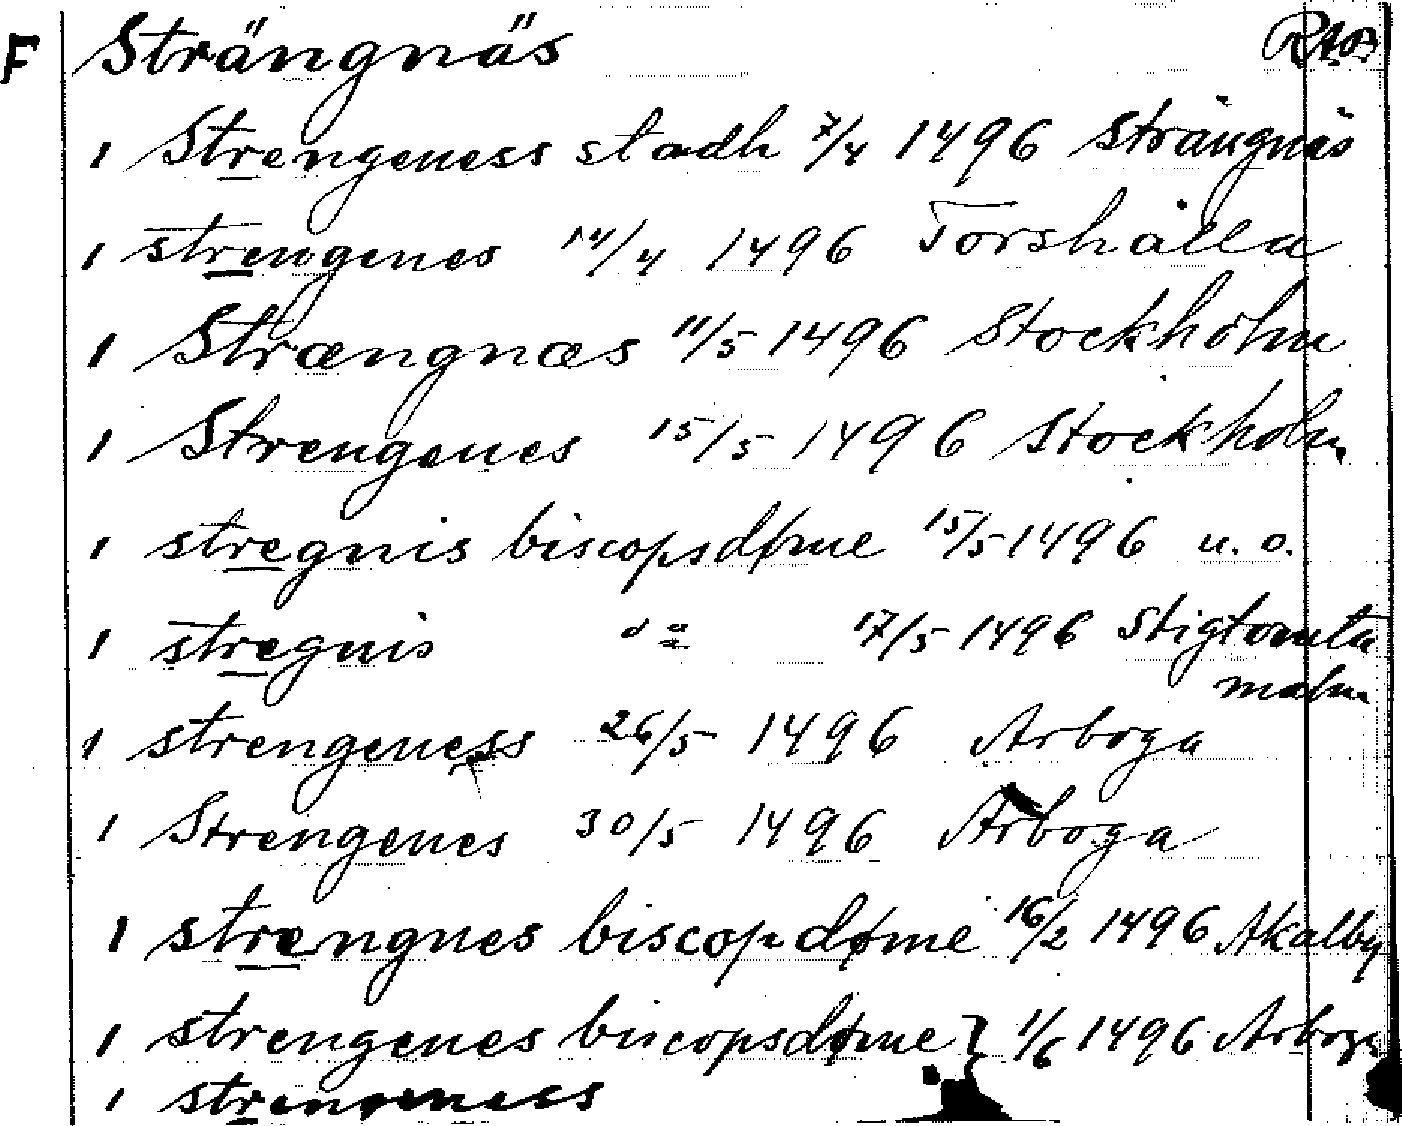 F Strängnäs
1 Strengeness stadh 7/4 1496 Strängnäs
1 strengenes 14/4 1496 Torshälla
1 Strængnæs 11/5 1496 Stockholm
1 Strengenes 15/5 1496 Stockholm
1 stregnis biscopsdøme 15/5 1496 u. o.
1 stregnis -"- 17/5 1496 Stigtomta
malm
1 strengeness 26/5 1496 Arboga
1 Strengenes 30/5 1496 Arboga
1 strengnes biscopdøme 16/2 1496 Akalby
1 strengenes biscopsdøme } 1/6 1496 Arboga
1 strengeness